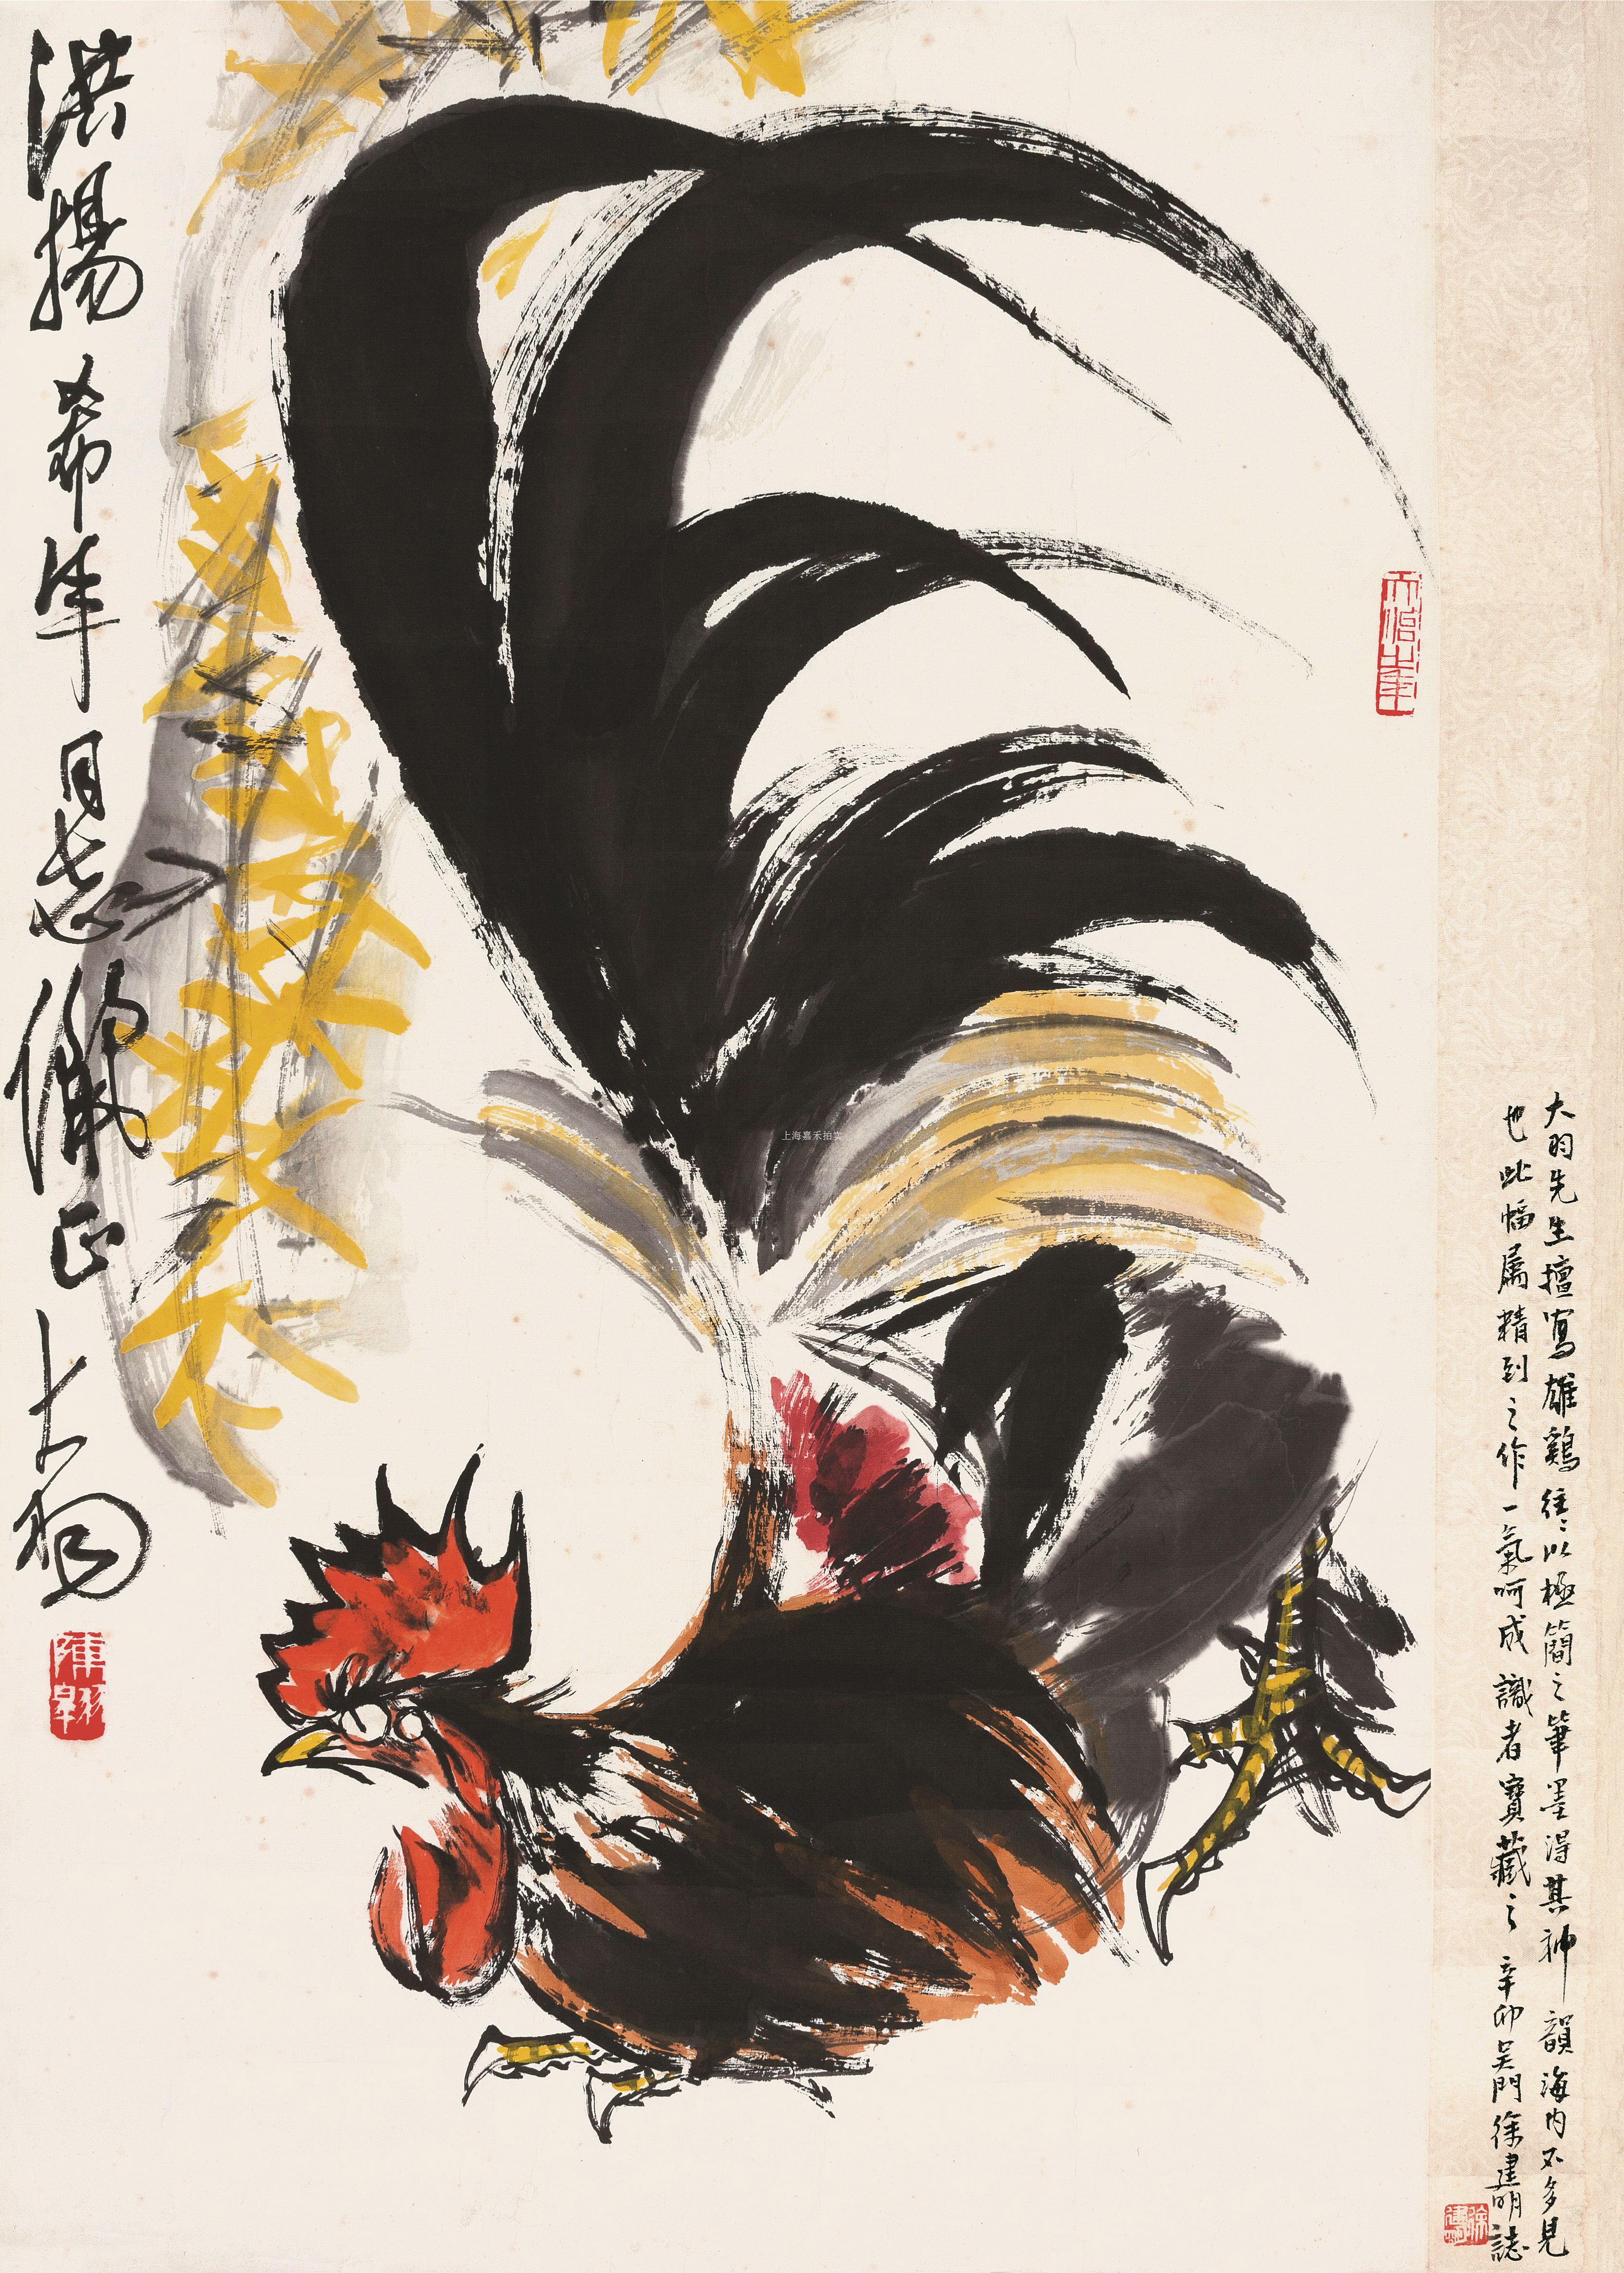 大羽先生擅寫雄鷄往往以極簡之筆墨得其神韻海内不多見
也此幅屬精到之作一氣呵成識者寶藏之辛卯吴門徐建明誌
洪揚希準同志儷正大羽
上海嘉禾拍卖